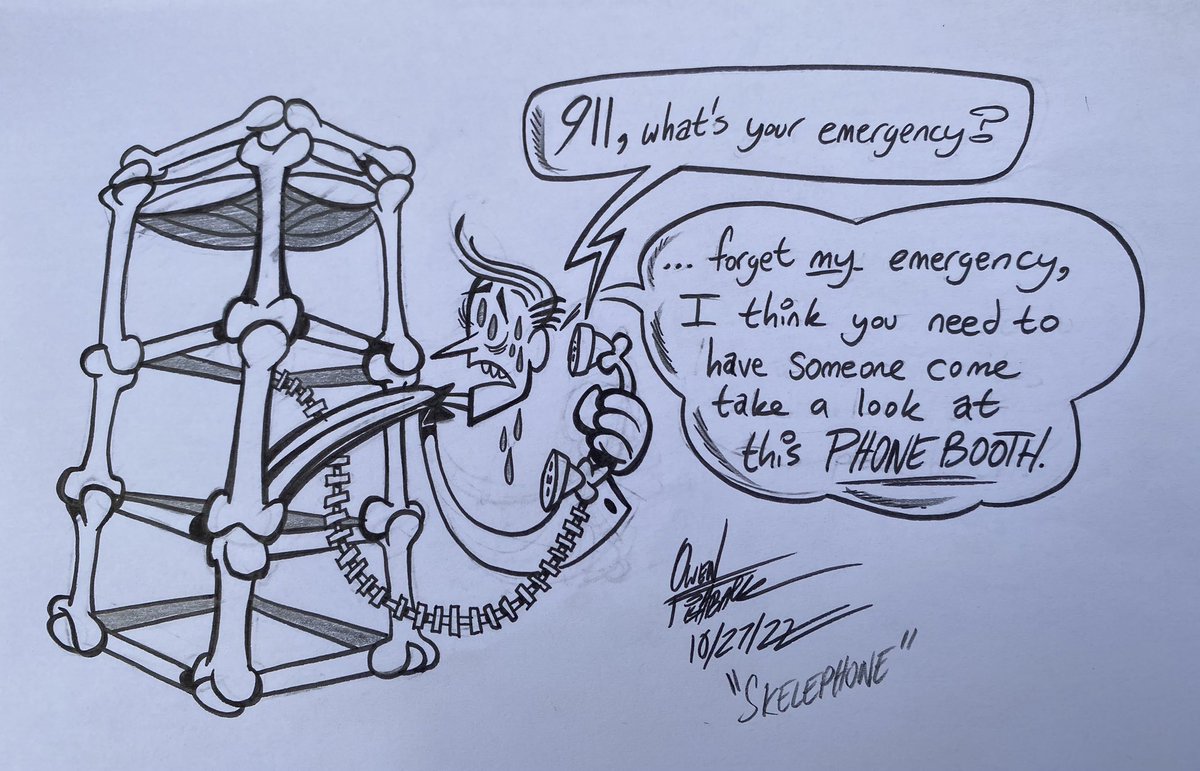 911, what's your emergency?
... forget my emergency,
I think you need to
have someone come
take a look at
this PHONE BOOTH.
Owen
10/27/22
"SKELEPHONE"